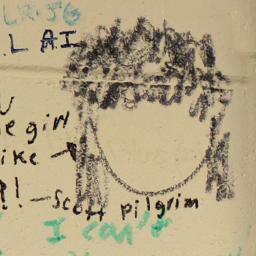 LR·JG
L AI
girl
ike →
?! — Scott pilgrim
I can't